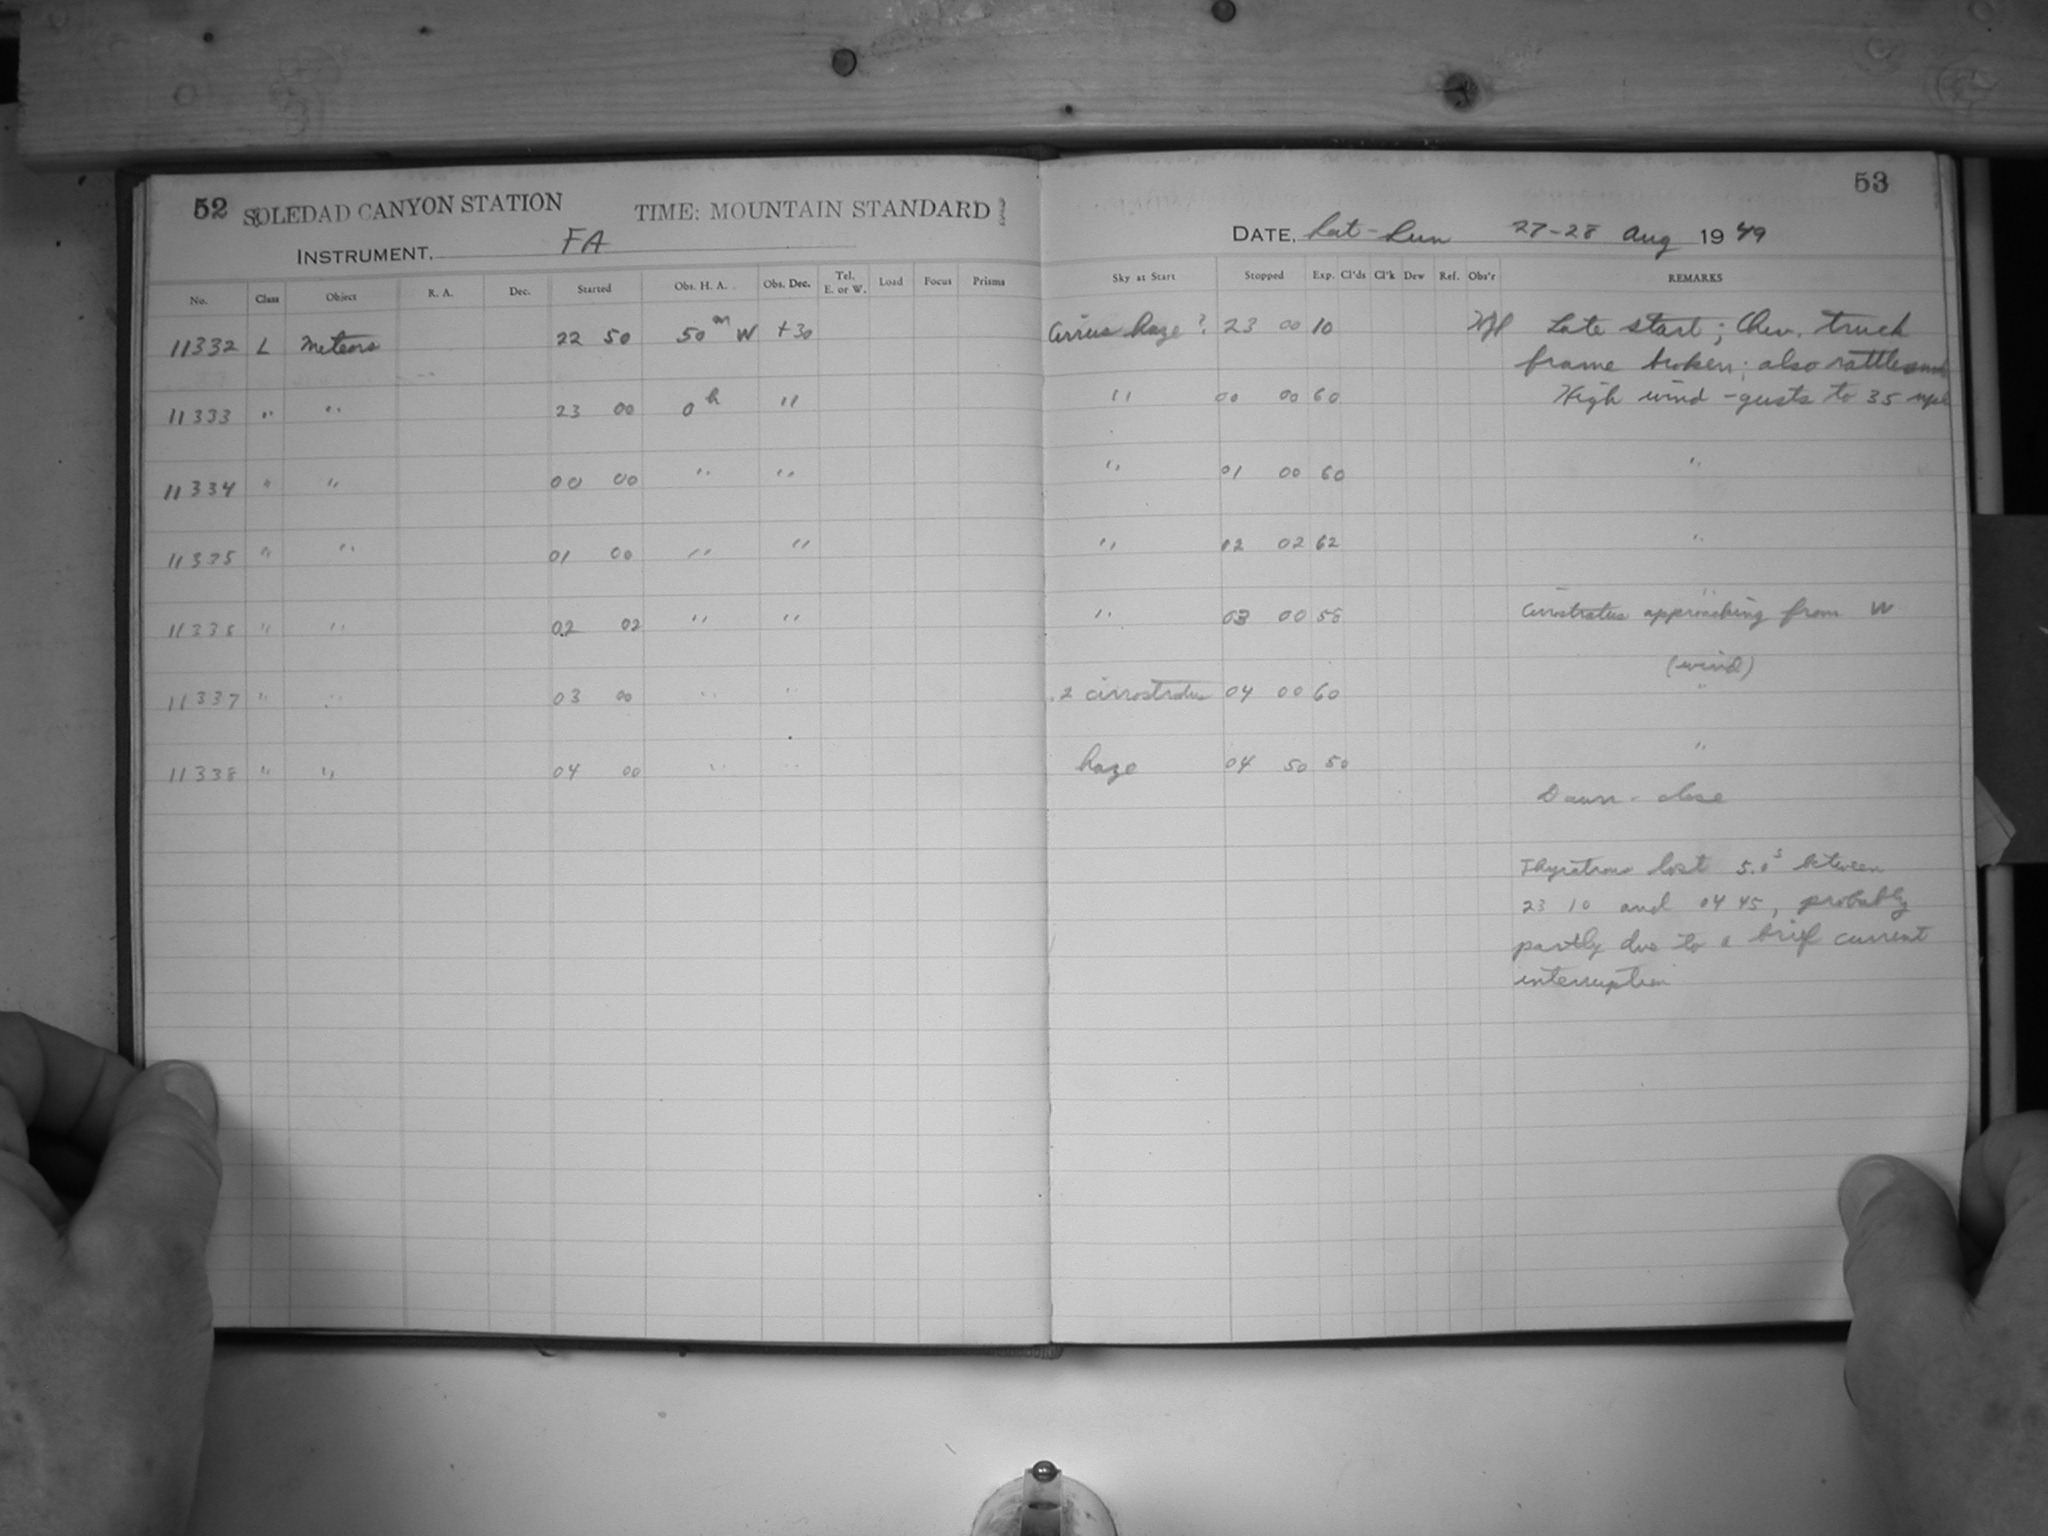 52 SOLEDAD CANYON STATION TIME: MOUNTAIN STANDARD
INSTRUMENT, FA
No. Class Object R. A. Dec. Started Obs. H. A. Obs. Dec. Tel. E. or W. Load Focus Prisms
11332 L Meteors 22 50 50m W +30
11333 " " 23 00 0h "
11334 " " 00 00 " "
11335 " " 01 00 " "
11336 " " 02 02 " "
11337 " " 03 00 " "
11338 " " 04 00 " "
53
DATE, Sat-Sun 27-28 Aug 1949
Sky at Start Stopped Exp. Cl'ds Cl'k Dew Ref. Obs'r REMARKS
Cirrus haze? 23 00 10 Late start; Chev. truck
frame broken; also
" 00 00 60 High wind - gusts to 35 mph
" 01 00 60 "
" 02 02 62 "
"
" 03 00 58 Cirrostratus approaching from W
(wind)
.2 cirrostratus 04 00 60 "
haze 04 50 50 "
Dawn - close
Thyratron lost 5.0s between
23 10 and 04 45, probably
partly due to a brief current
interruption